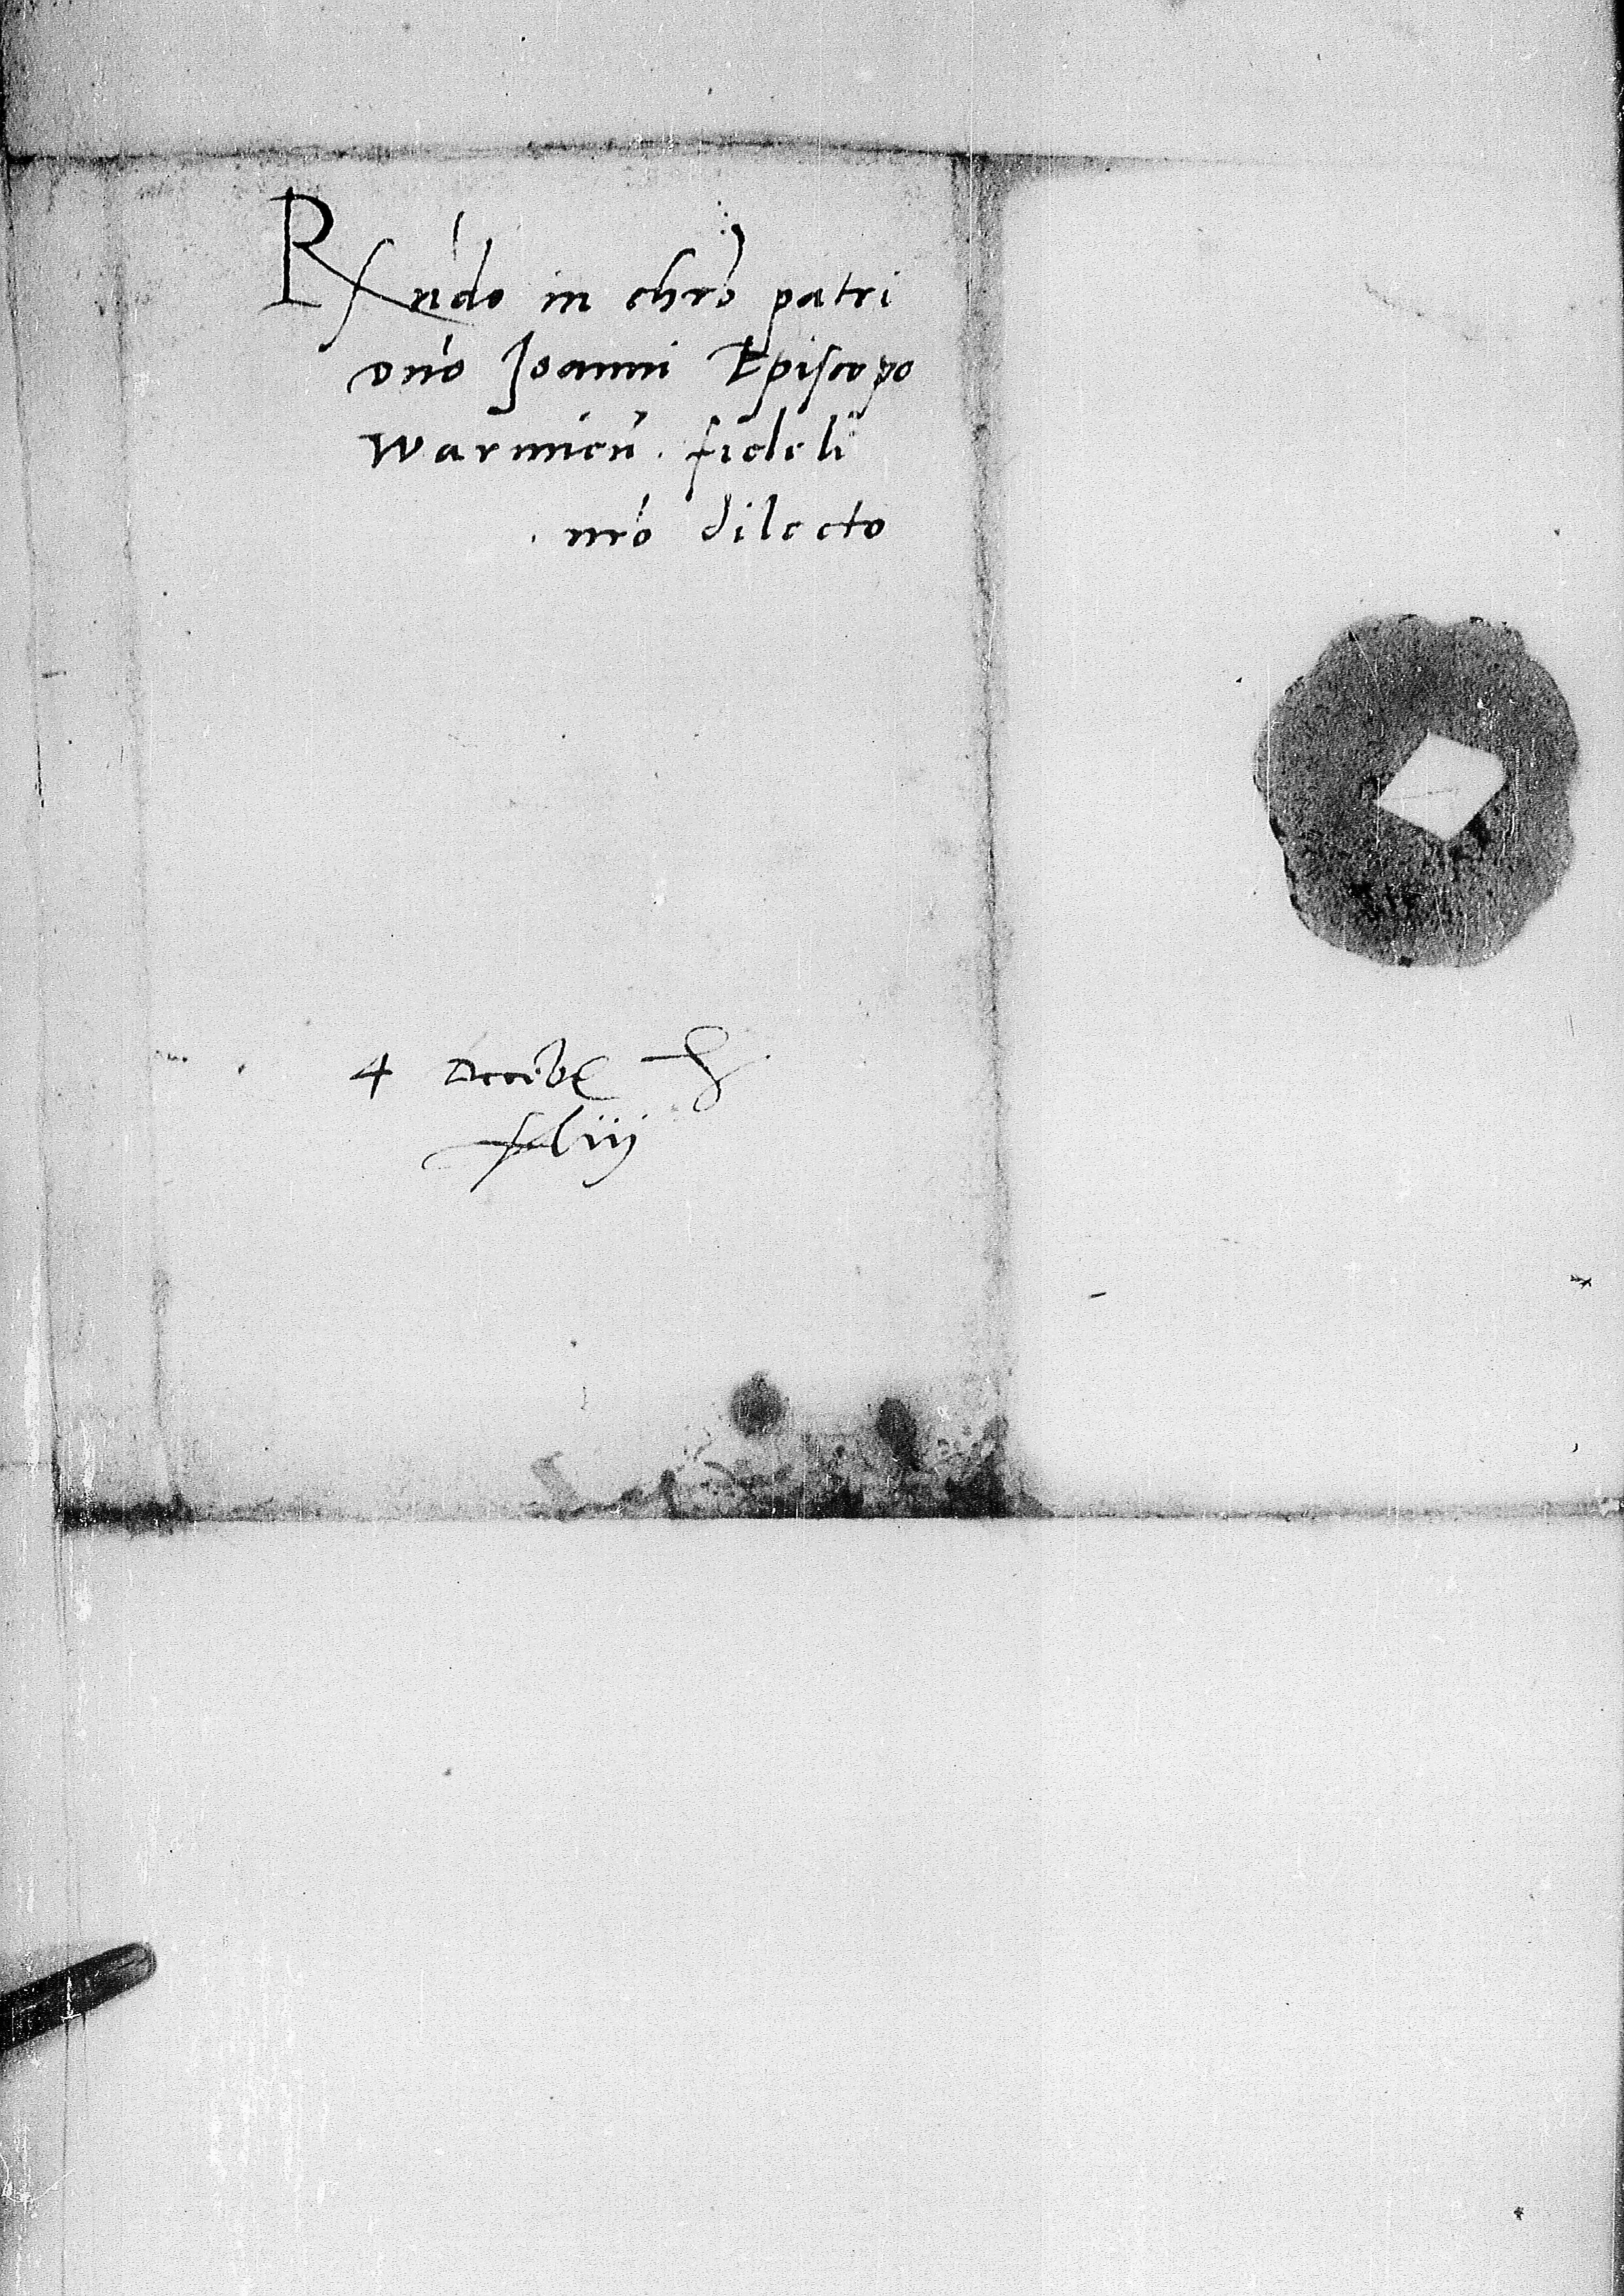 Rndo in chro patri
dno Joanni Episcopo
Warmien. fideli
nro dilecto
4 Decemb
xliij